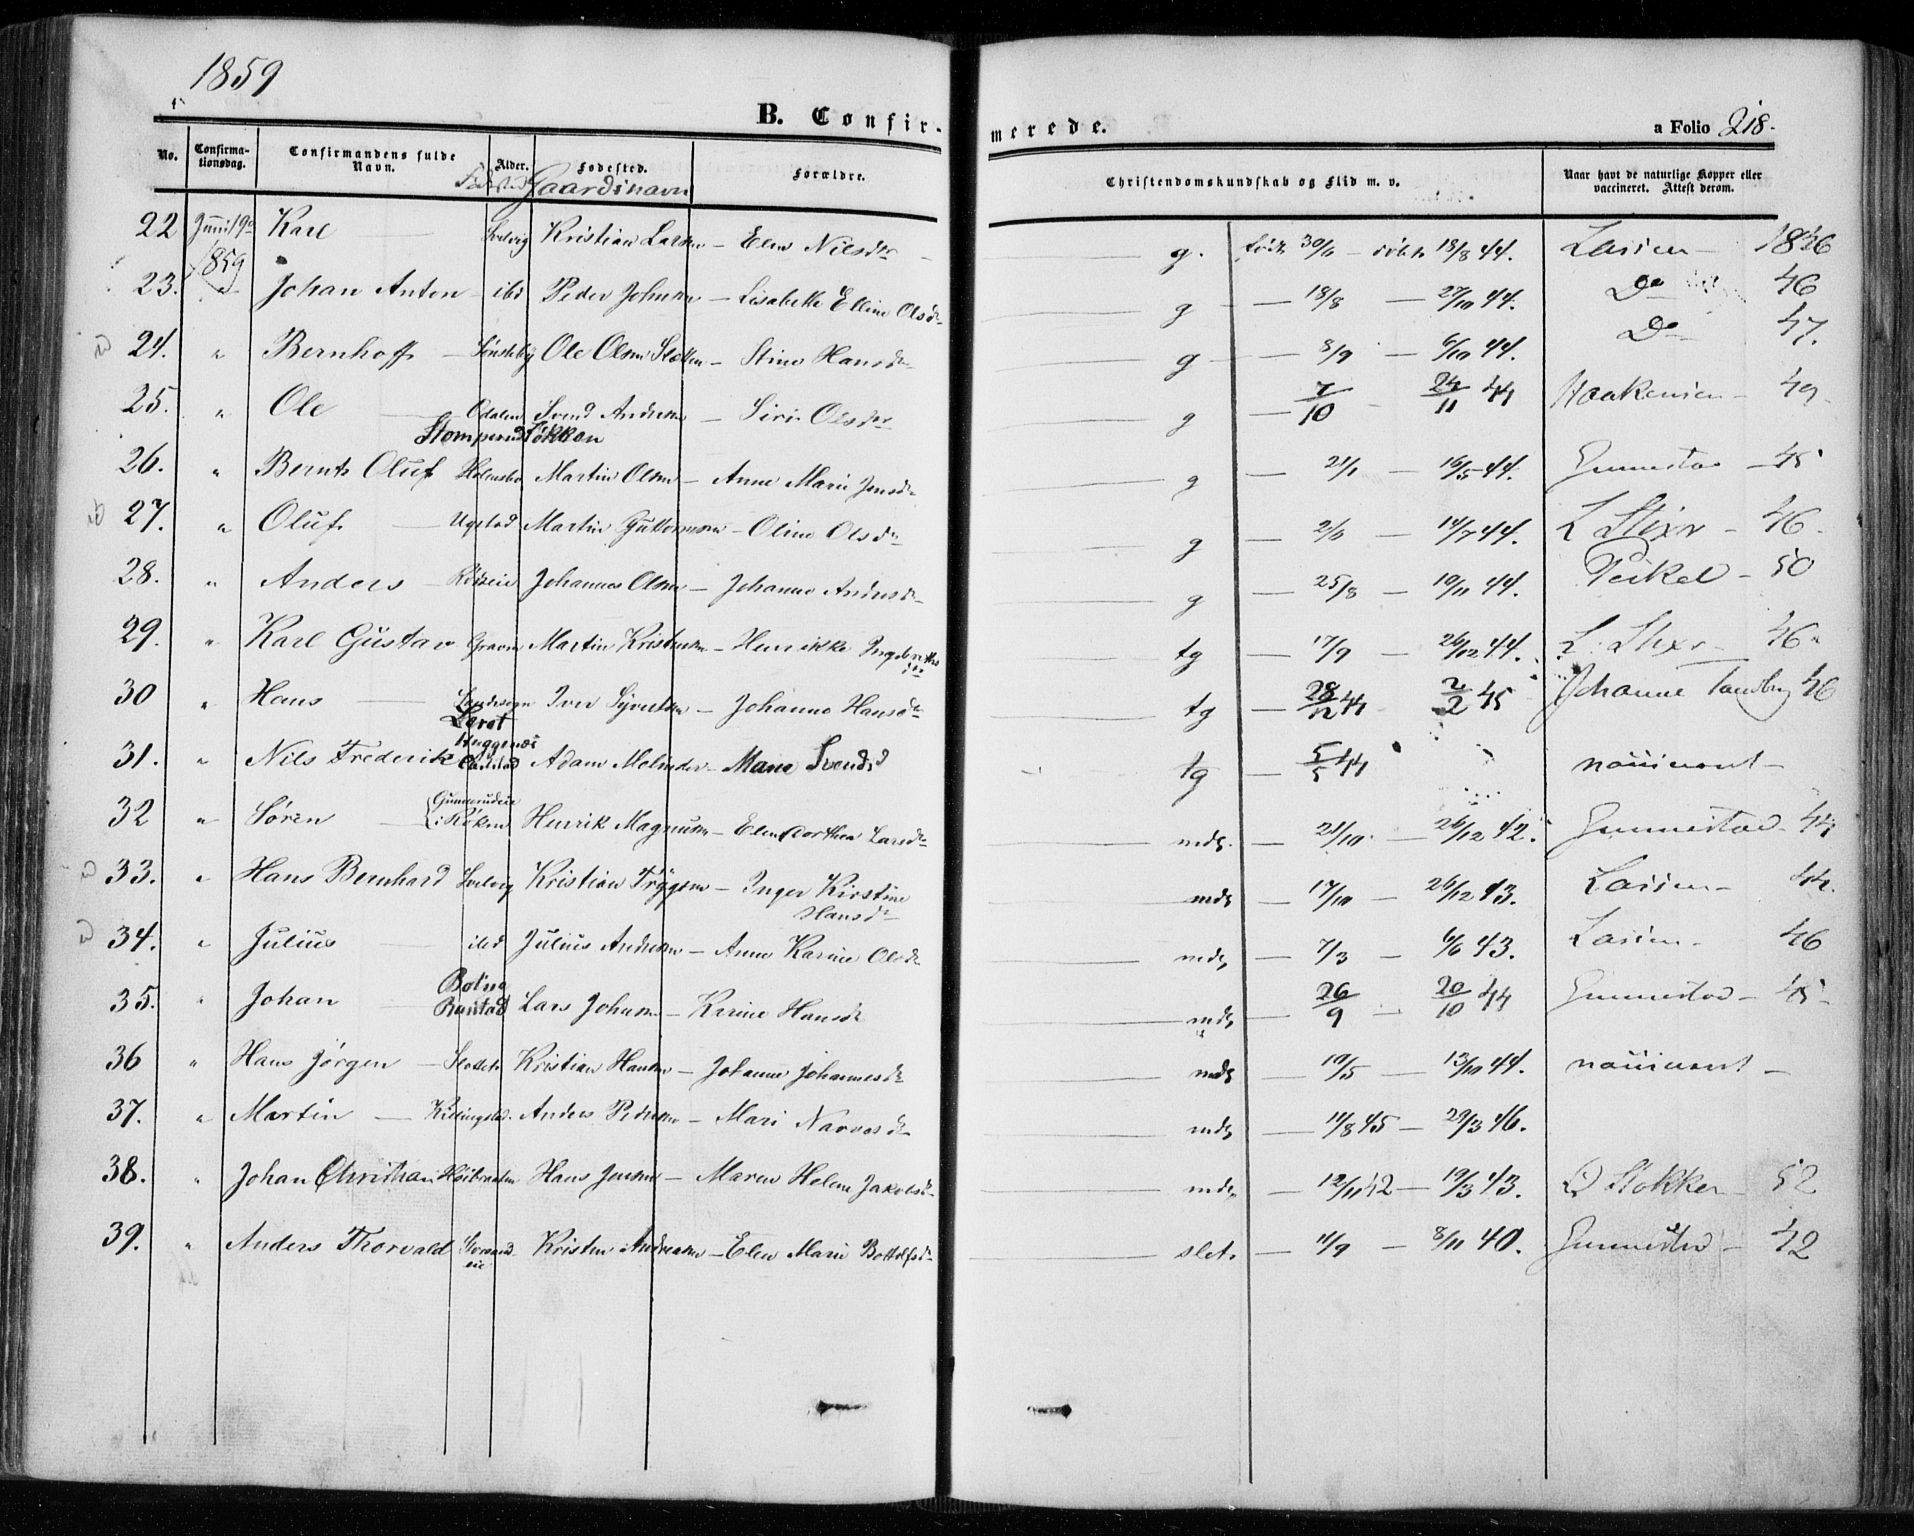 1859
B. Confirmerede.
a Folio 218.
No. Confirmationsdag. Confirmandens fulde Navn. Alder. Fødested. Gaardsnavn Forældre. Christendomskundskab og Flid m. v. Naar havt de naturlige Kopper eller vaccineret. Attest derom.
22 Juni 19de 1859 Karl — Svelvig Kristian Larsen — Elen Nilsdtr — g. født 30/6 — døbt 18/8 44. Lassen — 1846
23. " Johan Anton — ibd Peder Johnsen — Lisabeth Elline Olsdr — g — 18/8 — 27/10 44. Do 46
24. " Bernhoff — Ole Olsen — Stine Hansdr — g — 8/9 — 6/10 44. Do 47.
25. " Ole — Odalen Svend Andersen — Siri Olsdtr — g — 7/10 — 24/11 44 Haakensen — 49
Stomperudløkken
26. " Bernt Oluf Holmsbo Martin Olsen — Anne Marie Jensdr — g — 21/1 — 16/5 44. Gunnestad — 45
27. " Oluf — Ugstad Martin Guttormsen — Oline Olsdr — g — 2/6 — 14/7 44. L Stixr — 46
28. " Anders — Johannes Olsen — Johanne Andersdr — g — 25/8 — 10/11 44. Peikel — 50
29. " Karl Gustav Martin Kristensen — Henrikke Ingebretsdtr — tg — 17/9 — 26/12 44. L. Stixr — 46
30 " Hans — Iver Syvertsen — Johanne Hansdr — tg — 28/12 44 2/2 45 Johanne Tandberg 46
31. " Nils Frederik Adam — Marie Svendsd — tg — 5/5 44
32 " Søren — i Røken Henrik Magnusen — Elen Dorthea Larsdr — mdg. — 21/10 — 26/12 42. Gunnestad — 44
33. " Hans Bernhard Svelvig Kristian Trygesen — Inger Kirstine Hansdr — mdg — 17/10 — 26/12 43. Lassen — 44.
34. " Julius — ibd Julius Andersen — Anne Karine Olsdr — mdg — 7/3 — 6/6 43. Lassen — 46
35. " Johan — Lars Johnsen — Karine Hansdr — mdg 26/9 — 20/10 44 Gunnestad — 45
36 " Hans Jørgen — Kristian Hansen — Johanne Johannesdr — mdg — 19/5 — 13/10 44.
37. " Martin — Killingstad. Anders Pedersen — Mari Narvesdr — mdg — 11/8 45 — 29/3 46.
38. " Johan Christian Høibraaten Hans Jensen — Maren Helene Jakobsdr — mdg — 12/11 42 — 19/3 43. Stokker — 52
39. " Anders Thorvald Kristen Andreasen — Elen Marie Bottolfsdr — slet. — 11/9 — 8/11 40. Gunnestad — 42